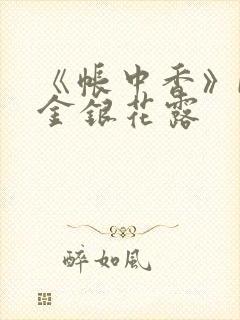 《帐中香》
金银花露
醉如风